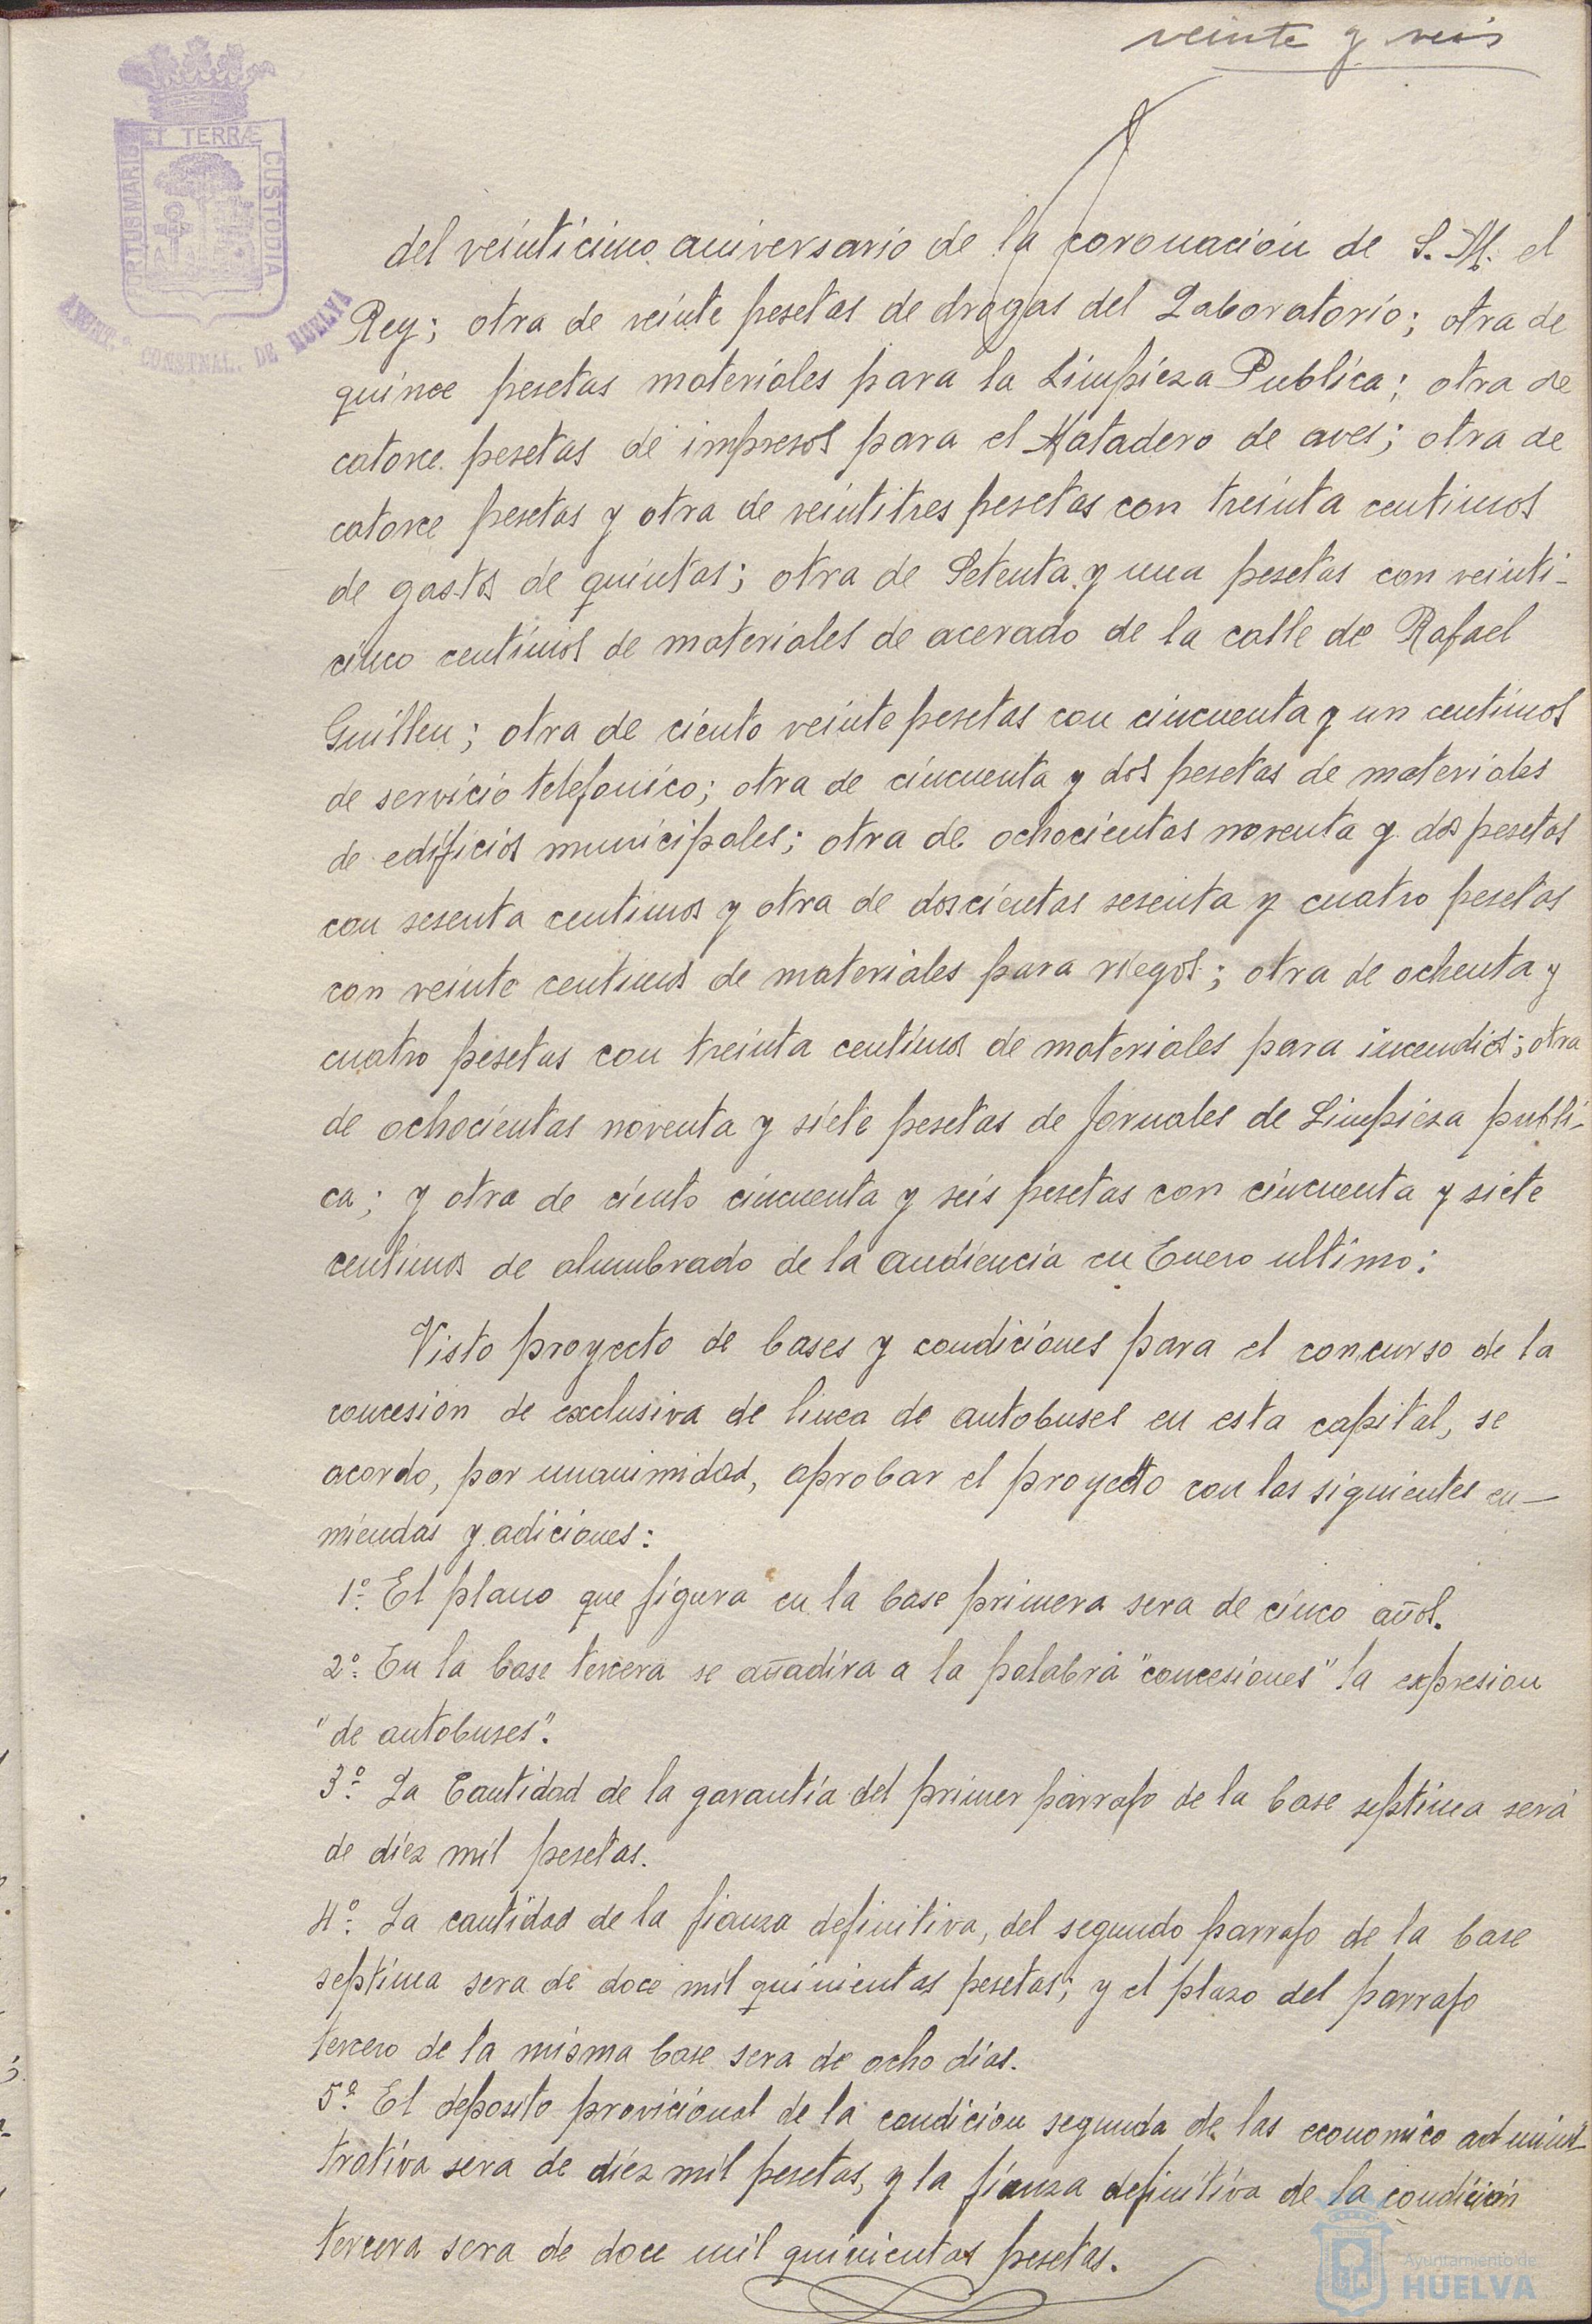 veinte y seis
PORTUS MARIS ET TERRÆ CUSTODIA
AYUNT.º CONSTNAL. DE HUELVA
del veinticinco aniversario de la coronación de S. M. el
Rey; otra de veinte pesetas de drogas del Laboratorio; otra de
quince pesetas materiales para la Limpieza Publica; otra de
catorce pesetas de impresos para el Matadero de aves; otra de
catorce pesetas y otra de veintitres pesetas con treinta centimos
de gastos de quintas; otra de Setenta y una pesetas con veinti-
cinco centimos de materiales de acerado de la calle de Rafael
Guillen; otra de ciento veinte pesetas con cincuenta y un centimos
de servicio telefonico; otra de cincuenta y dos pesetas de materiales
de edificios municipales; otra de ochocientas noventa y dos pesetas
con sesenta centimos y otra de doscientas sesenta y cuatro pesetas
con veinte centimos de materiales para riegos; otra de ochenta y
cuatro pesetas con treinta centimos de materiales para incendios; otra
de ochocientas noventa y siete pesetas de Jornales de Limpieza publi-
ca; y otra de ciento cincuenta y seis pesetas con cincuenta y siete
centimos de alumbrado de la audiencia en Enero ultimo:
Visto proyecto de bases y condiciones para el concurso de la
concesion de exclusiva de linea de autobuses en esta capital, se
acordo, por unanimidad, aprobar el proyecto con las siguientes en-
miendas y adiciones:
1º. El plano que figura en la base primera sera de cinco años.
2º. En la base tercera se añadira a la palabra "concesiones" la expresion
"de autobuses".
3º. La Cantidad de la garantía del primer parrafo de la base septima será
de diez mil pesetas.
4º. La cantidad de la fianza definitiva, del segundo parrafo de la base
septima sera de doce mil quinientas pesetas; y el plazo del parrafo
tercero de la misma base sera de ocho días.
5ª. El deposito provicional de la condicion segunda de las economico adminis-
trativa sera de diez mil pesetas, y la fianza definitiva de la condición
tercera sera de doce mil quinientas pesetas.
Ayuntamiento de
HUELVA